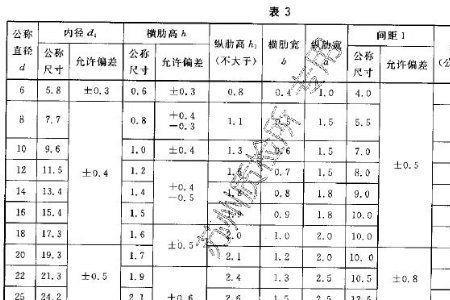 表 3
公称直径 d 内径 d₁ 横肋高 h 纵肋高 h₁ (不大于) 横肋宽 b 纵肋宽 间距 l
公称尺寸 允许偏差 公称尺寸 允许偏差 公称尺寸 允许偏差
6 5.8 ±0.3 0.6 ±0.3 0.8 0.4 1.0 4.0 ±0.5
8 7.7 ±0.4 0.8 +0.4 −0.3 1.1 1.5 5.5
10 9.6 1.0 ±0.4 1.3 0.6 1.5 7.0
12 11.5 1.2 +0.4 −0.5 0.7 1.5 8.0
14 13.4 1.4 0.8 1.8 9.0
16 15.4 1.5 0.9 1.8 10.0
18 17.3 1.6 ±0.5 2.0 1.0 2.0 10.0
20 19.3 ±0.5 1.7 2.1 1.2 2.0 10.0 ±0.8
22 21.3 1.9 ±0.6 2.4 1.3 2.5 10.5
25 24.2 2.1 2.6 1.5 2.5 12.5